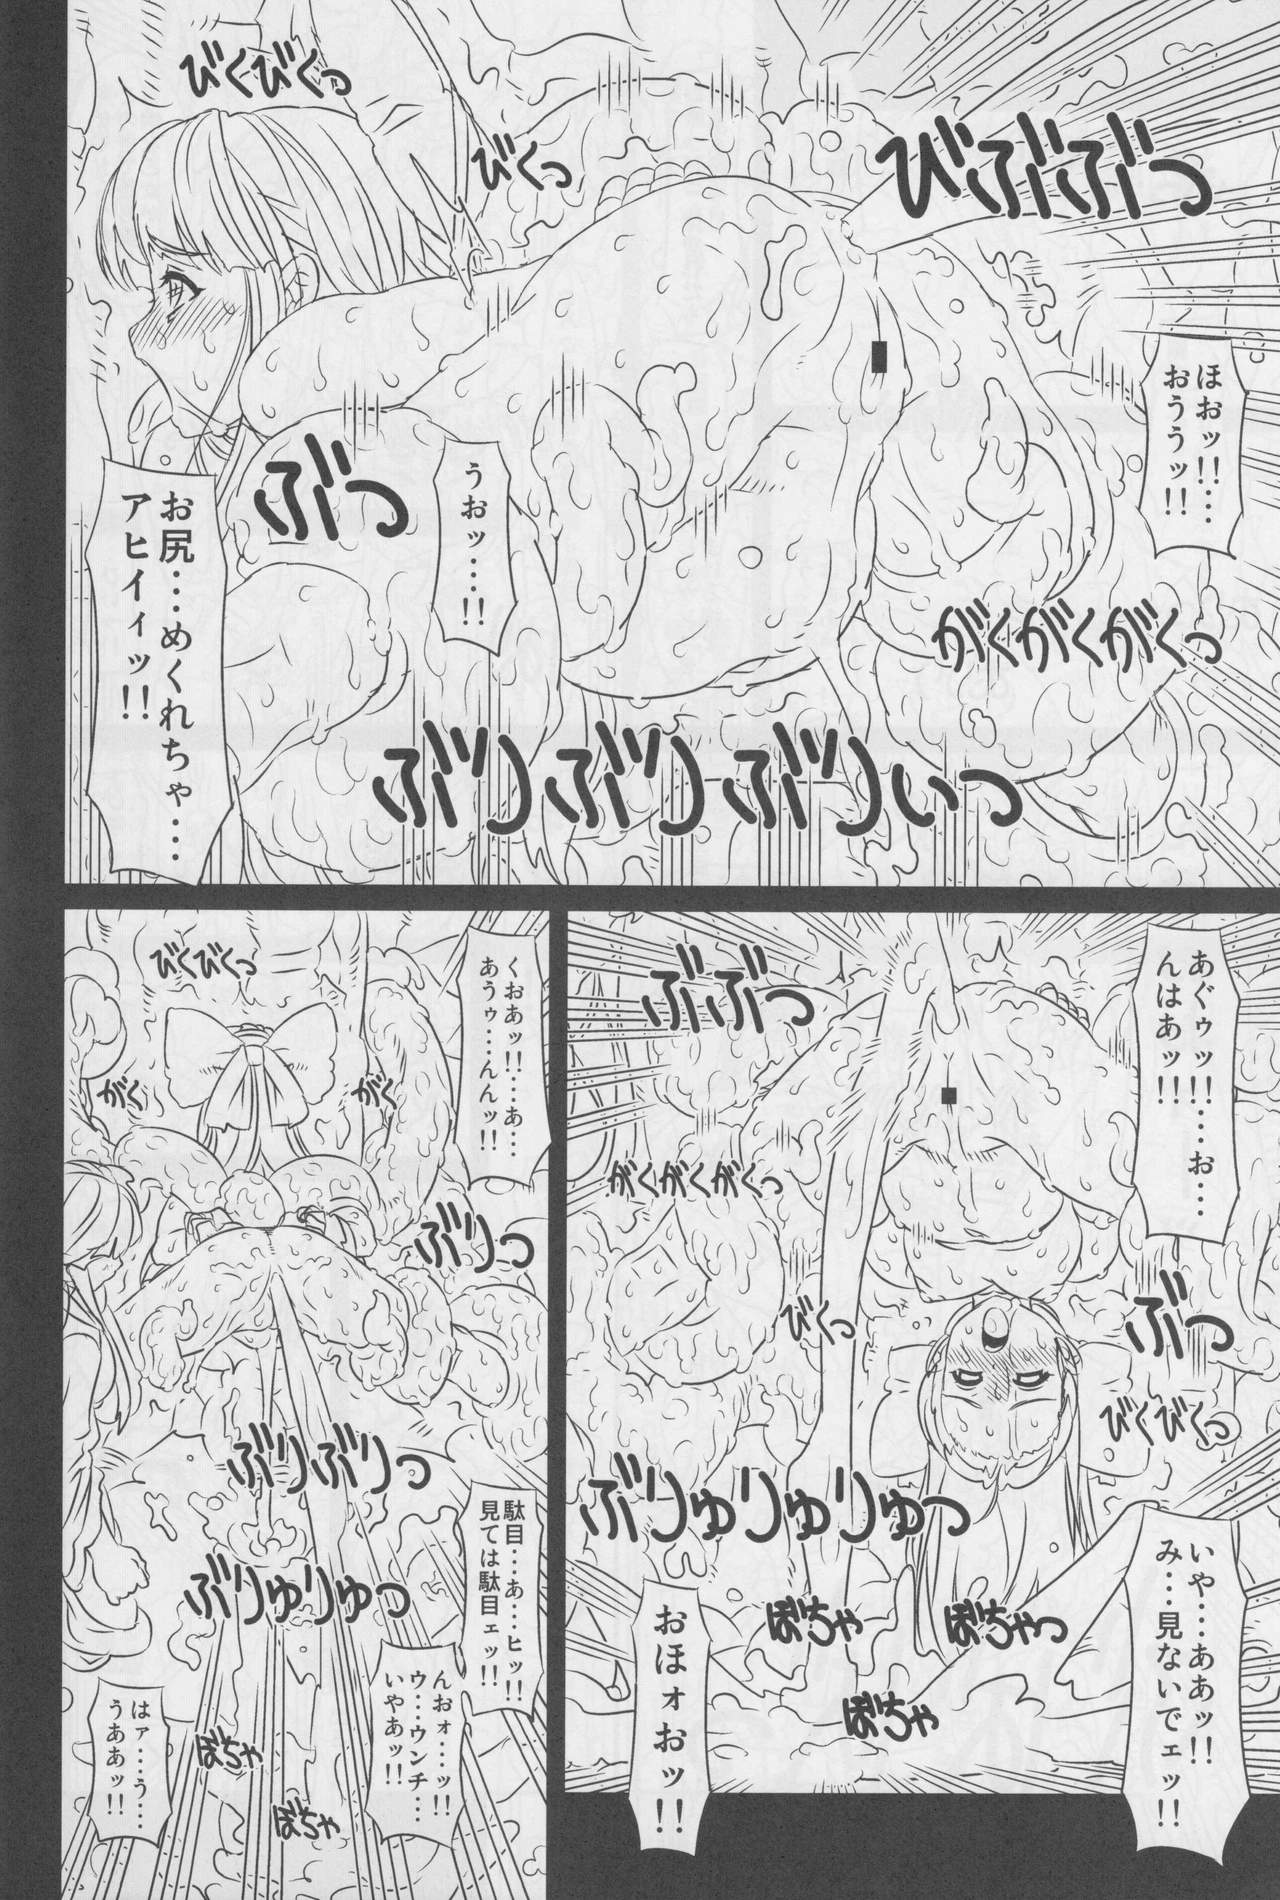 びくびくっ
びくっ
びぶぶぶっ
ほおッ!!…
おううッ!!
うおッ…!!
ぶっ
お尻…めくれちゃ…
アヒィィッ!!
がくがくがくっ
ぶりぶりぶりぃっ
あぐゥッ!!…お…
んはあッ!!
ぶぶぶっ
がくがくがくっ
びくっ
ぶっ
びくびくっ
ぶりゅりゅりゅっ
いや…ああッ!!
み…見ないでェッ!!
ぼちゃ
ぼちゃっ
ぼちゃ
おほォおッ!!
くおあッ!!…あ…
あうゥ…んんッ!!
びくびくっ
がく
がく
ぶりっ
ぶりぶりっ
駄目…あ…ヒッ!!
見ては駄目ェッ!!
ぶりゅりゅっ
んおォ…ッ!!
ウ…ウンチ…
いやあッ!!
ぼちゃ
はァ…う…
うああッ!!
ぼちゃ